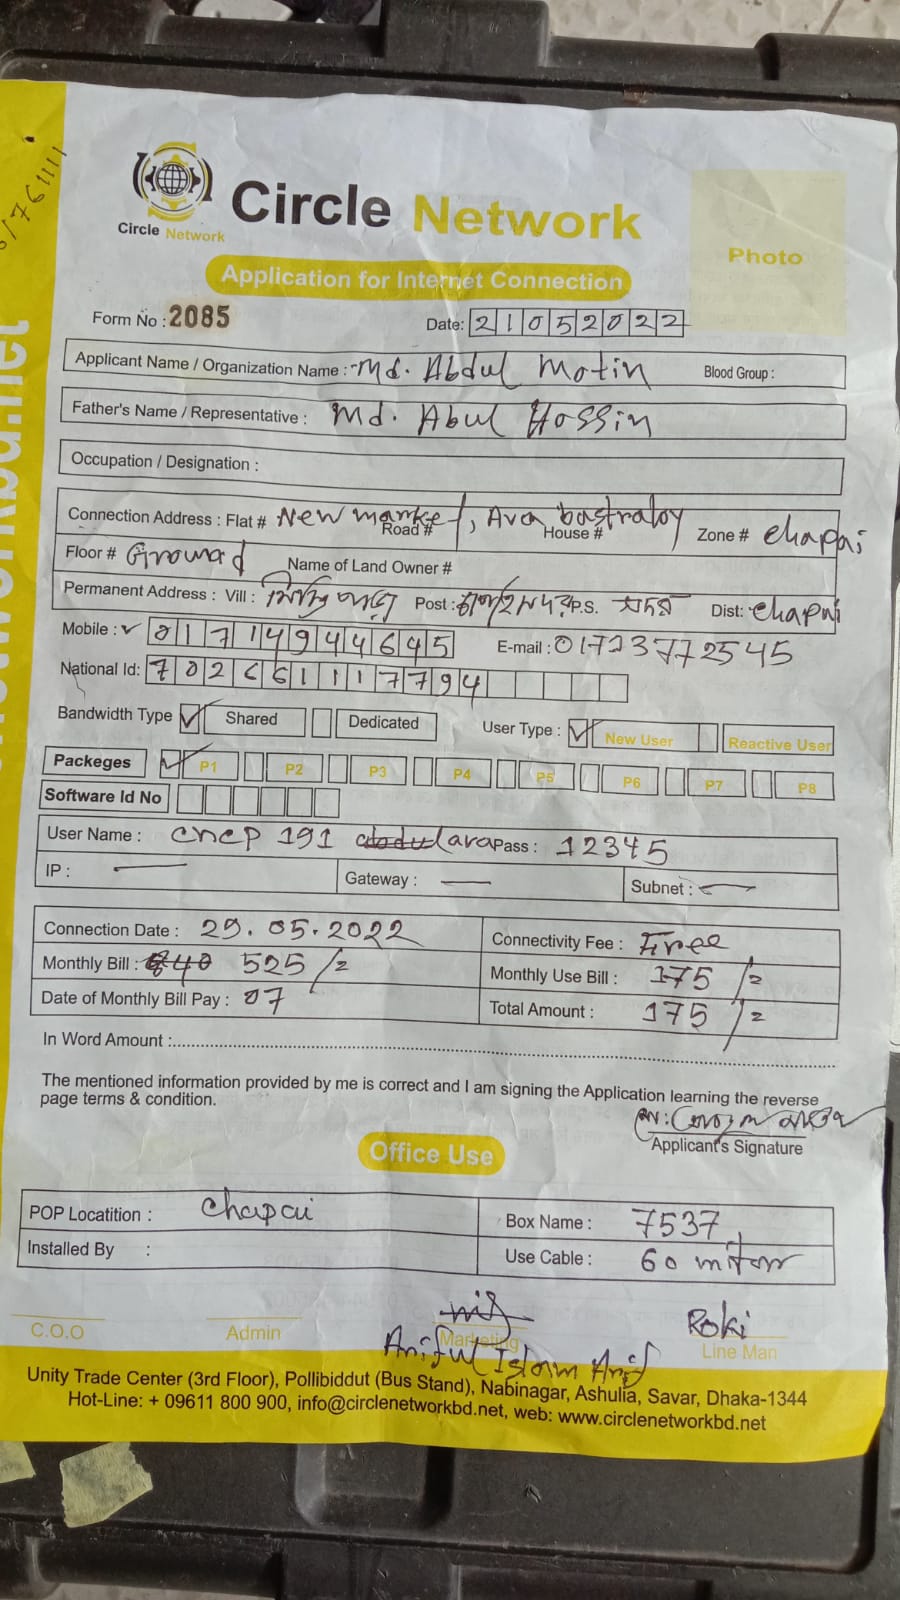 Circle Network
Circle Network
Photo
Application for Internet Connection
Form No : 2085
Date: 21052022
Applicant Name / Organization Name : Md. Abdul Motin Blood Group :
Father's Name / Representative : Md. Abul Hossin
Occupation / Designation :
Connection Address : Flat # New market, Ava bastraloy Road # House # Zone # chapai
Floor # Ground Name of Land Owner #
Permanent Address : Vill : Post : P.S. সদর Dist: chapai
Mobile : 01714944645 E-mail : 01723772545
National Id: 702661117794
Bandwidth Type Shared Dedicated User Type : New User Reactive User
Packeges P1 P2 P3 P4 P5 P6 P7 P8
Software Id No
User Name : cncp 191 ava Pass : 12345
IP : Gateway : Subnet :
Connection Date : 29.05.2022 Connectivity Fee : Free
Monthly Bill : 525/= Monthly Use Bill : 175/=
Date of Monthly Bill Pay : 07 Total Amount : 175/=
In Word Amount :
The mentioned information provided by me is correct and I am signing the Application learning the reverse
page terms & condition.
Applicant's Signature
Office Use
POP Locatition : chapai Box Name : 7537
Installed By : Use Cable : 60 mitar
C.O.O Admin Marketing Roki Line Man
Ariful Islam Arif
Unity Trade Center (3rd Floor), Pollibiddut (Bus Stand), Nabinagar, Ashulia, Savar, Dhaka-1344
Hot-Line: + 09611 800 900, info@circlenetworkbd.net, web: www.circlenetworkbd.net